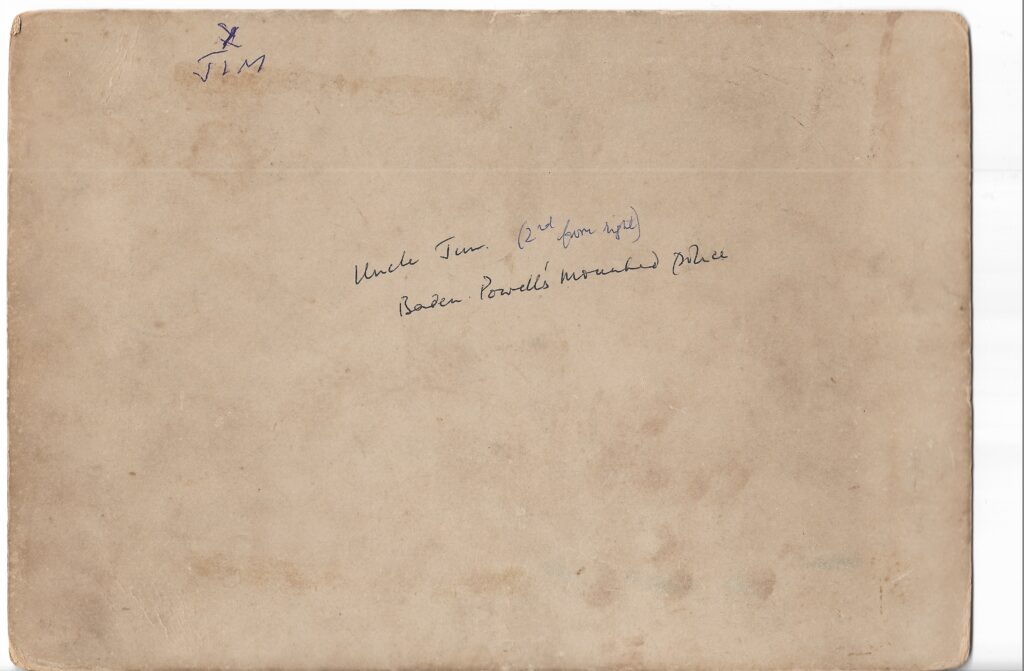 X
JIM
Uncle Jim. (2nd from right)
Baden. Powell's mounted police